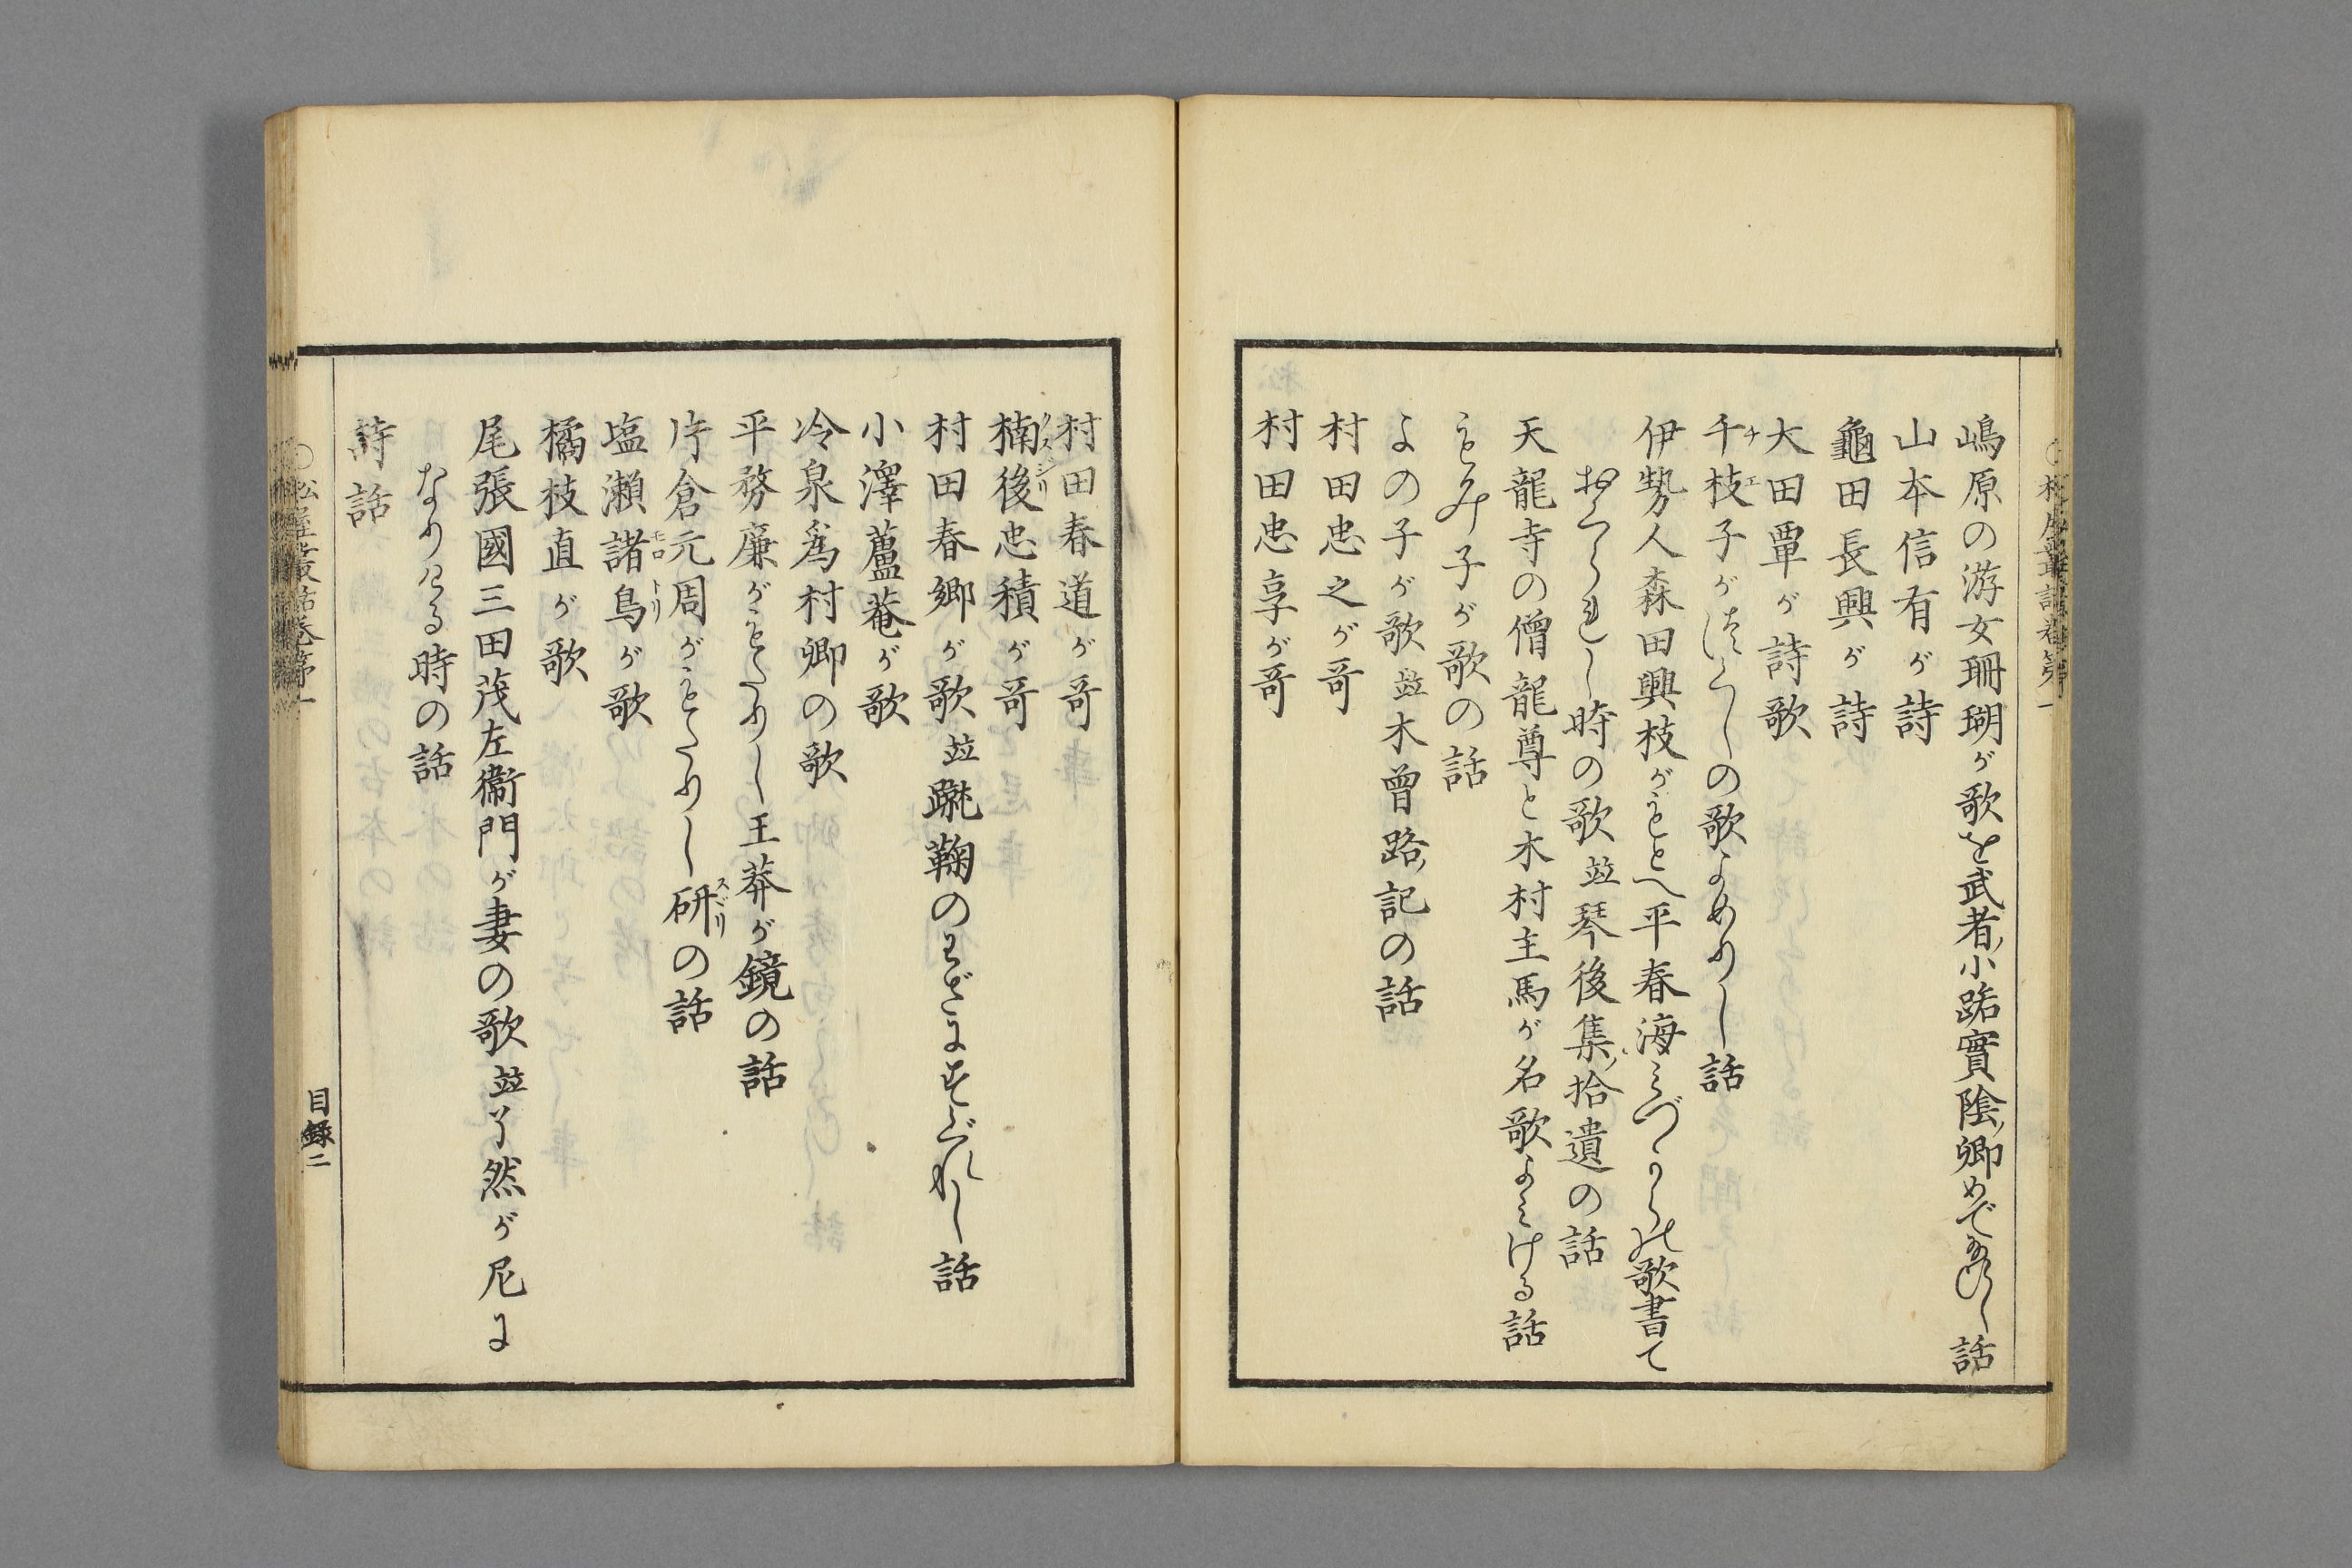 嶋原の游女珊瑚が歌を武者小路實陰卿めで給ひし話
山本信有が詩
龜田長興が詩
大田覃が詩歌
千枝子がはらくしの歌よめりし話
伊勢人森田興枝がもとへ平春海みづからの歌書て
おくられし時の歌並琴後集拾遺の話
天龍寺の僧龍尊と木村主馬が名歌よみける話
もみ子が歌の話
よの子が歌並木曾路記の話
村田忠之が哥
村田忠享が哥
村田春道が哥
楠後忠積が哥
村田春郷が歌並蹴鞠のわざにすぐれし話
小澤蘆菴が歌
冷泉爲村卿の歌
平務廉がもたりし王莽が鏡の話
片倉元周がもたりし研の話
塩瀬諸鳥が歌
橘枝直が歌
尾張國三田茂左衞門が妻の歌並了然が尼に
なりける時の話
詩話
○松屋叢話卷第一
目録二